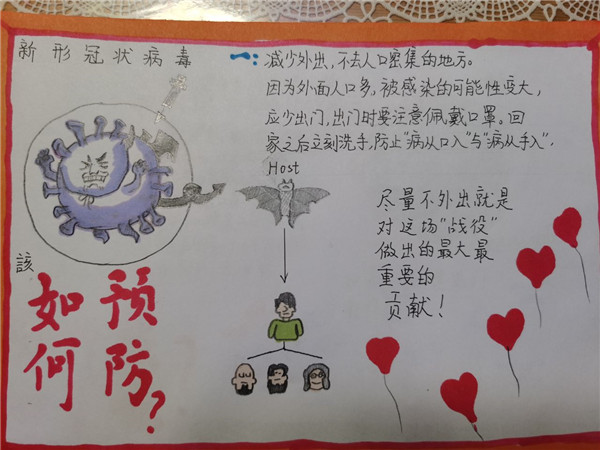 新形冠状病毒
一:减少外出,不去人口密集的地方。
因为外面人口多,被感染的可能性变大,
应少出门,出门时要注意佩戴口罩。回
家之后立刻洗手,防止“病从口入”与“病从手入”.
Host
尽量不外出就是
对这场“战役”
做出的最大最
重要的
贡献!
該
如何
预防?